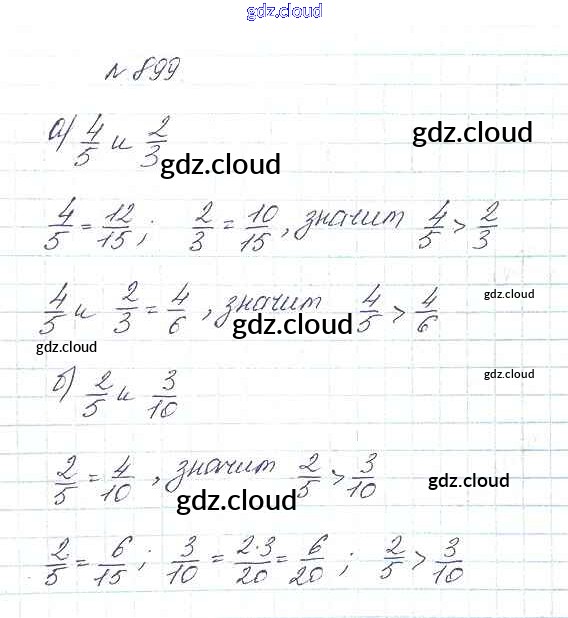 gdz.cloud
№ 899
а) 4/5 и 2/3
gdz.cloud
gdz.cloud
4/5 = 12/15; 2/3 = 10/15, значит 4/5 > 2/3
4/5 и 2/3 = 4/6, значит 4/5 > 4/6
gdz.cloud
gdz.cloud
gdz.cloud
б) 2/5 и 3/10
gdz.cloud
2/5 = 4/10, значит 2/5 > 3/10
gdz.cloud
gdz.cloud
2/5 = 6/15; 3/10 = 2·3/20 = 6/20; 2/5 > 3/10